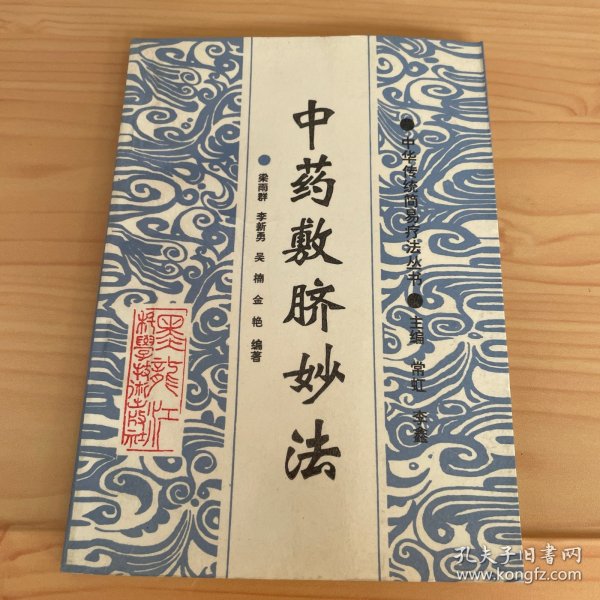 中药敷脐妙法
梁雨群 李新勇 吴楠 金艳 编著
中华传统简易疗法丛书
主编 常虹 李鑫
黑龙江
科学技术出版社
孔夫子旧书网
www.kongfz.com